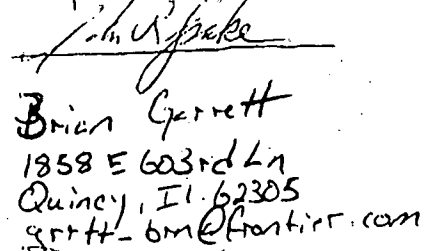 Brian Garrett
1858 E 603rd Ln
Quincy, Il. 62305
grrtt_brn@frontier.com